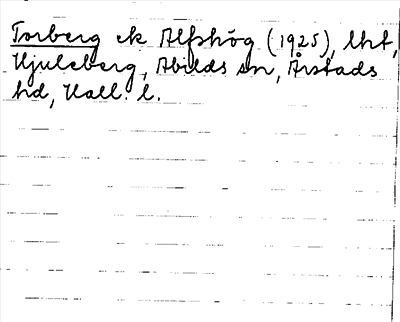 Torberg ek Alfshög (1925), lht,
Hjuleberg, Abilds sn, Årstads
hd, Hall. l.